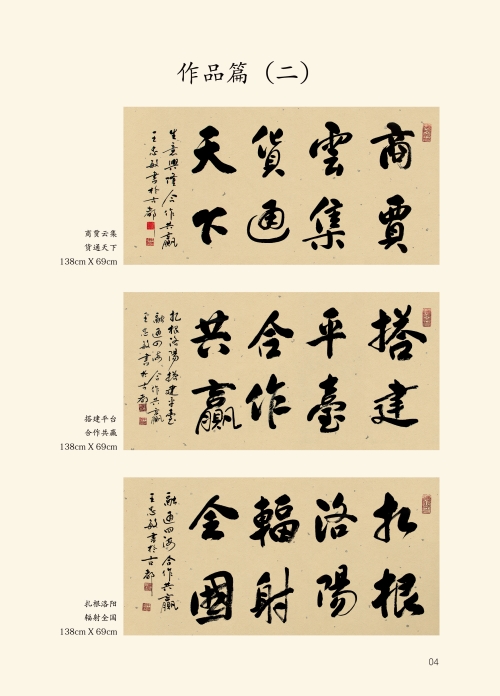 作品篇（二）
商賈
雲集
貨通
天下
生意興隆 合作共贏
王志敏書於古都
商贾云集
货通天下
138cm X 69cm
搭建
平臺
合作
共贏
扎根洛陽 搭建平臺
融通四海 合作共贏
王志敏書於古都
搭建平台
合作共赢
138cm X 69cm
扎根
洛陽
輻射
全國
融通四海 合作共贏
王志敏書於古都
扎根洛阳
辐射全国
138cm X 69cm
04